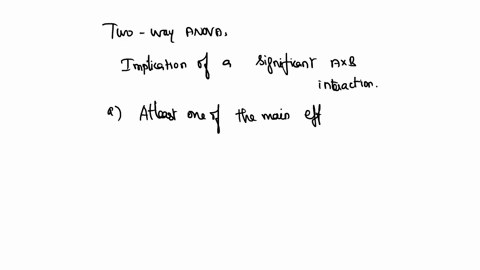 Two-way ANOVA.
Implication of a significant A×B
interaction.
a) Atleast one of the main eff